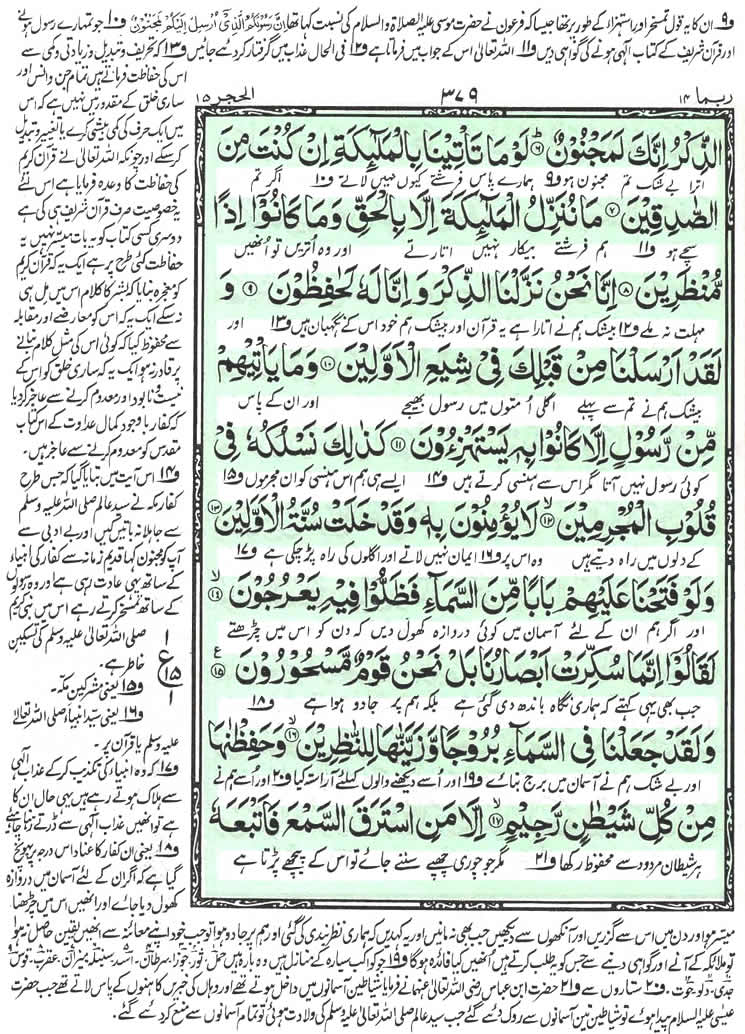 و۹ ان کا یہ قول تمسخر اور استہزاء کے طور پر تھا جیسا کہ فرعون نے حضرت موسیٰ علیہ الصلاۃ والسلام کی نسبت کہا تھا اِنَّ رَسُوْلَكُمُ الَّذِیْۤ اُرْسِلَ اِلَیْكُمْ لَمَجْنُوْنٌ و۱۰ جو تمہارے رسول ہونے
اور قرآن شریف کے کتاب الٰہی ہونے کی گواہی دیں و۱۱ اللہ تعالیٰ اس کے جواب میں فرماتا ہے و۱۲ فی الحال عذاب میں گرفتار کر دئے جائیں و۱۳ کہ تحریف و تبدیل و زیادتی و کمی سے
ربما ۱۴
۳۷۹
الحجر ۱۵
الذِّكْرُ اِنَّكَ لَمَجْنُوْنٌ ۶ لَوْ مَا تَاْتِیْنَا بِالْمَلٰٓىِٕكَةِ اِنْ كُنْتَ مِنَ
اترا بے شک تم مجنون ہو و۹ ہمارے پاس فرشتے کیوں نہیں لاتے و۱۰ اگر تم
الصّٰدِقِیْنَ ۷ مَا نُنَزِّلُ الْمَلٰٓىِٕكَةَ اِلَّا بِالْحَقِّ وَ مَا كَانُوْۤا اِذًا
سچے ہو و۱۱ ہم فرشتے بیکار نہیں اتارتے اور وہ اُتریں تو اُنھیں
مُّنْظَرِیْنَ ۸ اِنَّا نَحْنُ نَزَّلْنَا الذِّكْرَ وَ اِنَّا لَهٗ لَحٰفِظُوْنَ ۹ وَ
مہلت نہ ملے و۱۲ بیشک ہم نے اتارا ہے یہ قرآن اور بیشک ہم خود اس کے نگہبان ہیں و۱۳ اور
لَقَدْ اَرْسَلْنَا مِنْ قَبْلِكَ فِیْ شِیَعِ الْاَوَّلِیْنَ ۱۰ وَ مَا یَاْتِیْهِمْ
بیشک ہم نے تم سے پہلے اگلی اُمتوں میں رسول بھیجے اور ان کے پاس
مِّنْ رَّسُوْلٍ اِلَّا كَانُوْا بِهٖ یَسْتَهْزِءُوْنَ ۱۱ كَذٰلِكَ نَسْلُكُهٗ فِیْ
کوئی رسول نہیں آتا مگر اس سے ہنسی کرتے ہیں و۱۴ ایسے ہی ہم اس ہنسی کو ان مجرموں و۱۵
قُلُوْبِ الْمُجْرِمِیْنَ ۱۲ لَا یُؤْمِنُوْنَ بِهٖ وَ قَدْ خَلَتْ سُنَّةُ الْاَوَّلِیْنَ ۱۳
کے دلوں میں راہ دیتے ہیں وہ اس پر و۱۶ ایمان نہیں لاتے اور اگلوں کی راہ پڑ چکی ہے و۱۷
وَ لَوْ فَتَحْنَا عَلَیْهِمْ بَابًا مِّنَ السَّمَآءِ فَظَلُّوْا فِیْهِ یَعْرُجُوْنَ ۱۴
اور اگر ہم ان کے لئے آسمان میں کوئی دروازہ کھول دیں کہ دن کو اس میں چڑھتے
لَقَالُوْۤا اِنَّمَا سُكِّرَتْ اَبْصَارُنَا بَلْ نَحْنُ قَوْمٌ مَّسْحُوْرُوْنَ ۱۵
جب بھی یہی کہتے کہ ہماری نگاہ باندھ دی گئی ہے بلکہ ہم پر جادو ہوا ہے و۱۸
وَ لَقَدْ جَعَلْنَا فِی السَّمَآءِ بُرُوْجًا وَّ زَیَّنّٰهَا لِلنّٰظِرِیْنَ ۱۶ وَ حَفِظْنٰهَا
اور بے شک ہم نے آسمان میں برج بنائے و۱۹ اور اُسے دیکھنے والوں کیلئے آراستہ کیا و۲۰ اور اُسے ہم نے
مِنْ كُلِّ شَیْطٰنٍ رَّجِیْمٍ ۱۷ اِلَّا مَنِ اسْتَرَقَ السَّمْعَ فَاَتْبَعَهٗ
ہر شیطان مردود سے محفوظ رکھا و۲۱ مگر جو چوری چھپے سننے جائے تو اس کے پیچھے پڑتا ہے
اس کی حفاظت فرماتے ہیں تمام جن و انس اور
ساری خلق کے مقدور میں نہیں ہے کہ اس
میں ایک حرف کی کمی بیشی کرے یا تغییر و تبدیل
کر سکے اور چونکہ اللہ تعالیٰ نے قرآن کریم
کی حفاظت کا وعدہ فرمایا ہے اس لئے
یہ خصوصیت صرف قرآن شریف ہی کی ہے
دوسری کسی کتاب کو یہ بات میسر نہیں یہ
حفاظت کئی طرح پر ہے ایک یہ کہ قرآن کریم
کو معجزہ بنایا کہ بشر کا کلام اس میں مل ہی
نہ سکے ایک یہ کہ اس کو معارضے اور مقابلہ
سے محفوظ کیا کہ کوئی اس کی مثل کلام بنانے
پر قادر نہ ہو ایک یہ کہ ساری خلق کو اس کے
نیست و نابود اور معدوم کرنے سے عاجز کر دیا
کہ کفار باوجود کمال عداوت کے اس کتاب
مقدس کو معدوم کرنے سے عاجز ہیں۔
و۱۴ اس آیت میں بتایا گیا کہ جس طرح
کفار مکہ نے سید عالم صلی اللہ علیہ وسلم
سے جاہلانہ باتیں کیں اور بے ادبی سے
آپ کو مجنون کہا قدیم زمانہ سے کفار کی انبیاء
کے ساتھ یہی عادت رہی ہے اور وہ رسولوں
کے ساتھ تمسخر کرتے رہے اس میں نبی کریم
صلی اللہ تعالیٰ علیہ وسلم کی تسکین
خاطر ہے۔
و۱۵ یعنی مشرکین مکہ۔
و۱۶ یعنی سید انبیاء صلی اللہ تعالیٰ
علیہ وسلم یا قرآن پر۔
و۱۷ کہ وہ انبیاء کی تکذیب کر کے عذاب الٰہی
سے ہلاک ہوتے رہے ہیں یہی حال ان کا
ہے تو انھیں عذاب الٰہی سے ڈرتے رہنا چاہئے
و۱۸ یعنی ان کفار کا عناد اس درجہ پر پہونچ
گیا ہے کہ اگر ان کے لئے آسمان میں دروازہ
کھول دیا جائے اور انھیں اس میں چڑھنا
۱
ع
۱۵
۱
میسر ہو اور دن میں اس سے گزریں اور آنکھوں سے دیکھیں جب بھی نہ مانیں اور یہ کہہ دیں کہ ہماری نظر بندی کی گئی اور ہم پر جادو ہوا تو جب خود اپنے معائنہ سے انھیں یقین حاصل نہ ہوا
تو ملائکہ کے آنے اور گواہی دینے سے جس کو یہ طلب کرتے ہیں انھیں کیا فائدہ ہوگا و۱۹ جو کواکب سیارہ کے منازل ہیں وہ بارہ ہیں حمل، ثور، جوزا، سرطان، اسد، سنبلہ، میزان، عقرب، قوس،
جدی، دلو، حوت۔ و۲۰ ستاروں سے و۲۱ حضرت ابن عباس رضی اللہ تعالیٰ عنہما نے فرمایا شیاطین آسمانوں میں داخل ہوتے تھے اور وہاں کی خبریں کاہنوں کے پاس لاتے تھے جب حضرت
عیسیٰ علیہ السلام پیدا ہوئے تو شیاطین تین آسمانوں سے روک دئے گئے جب سید عالم صلی اللہ تعالیٰ علیہ وسلم کی ولادت ہوئی تو تمام آسمانوں سے منع کر دئے گئے۔